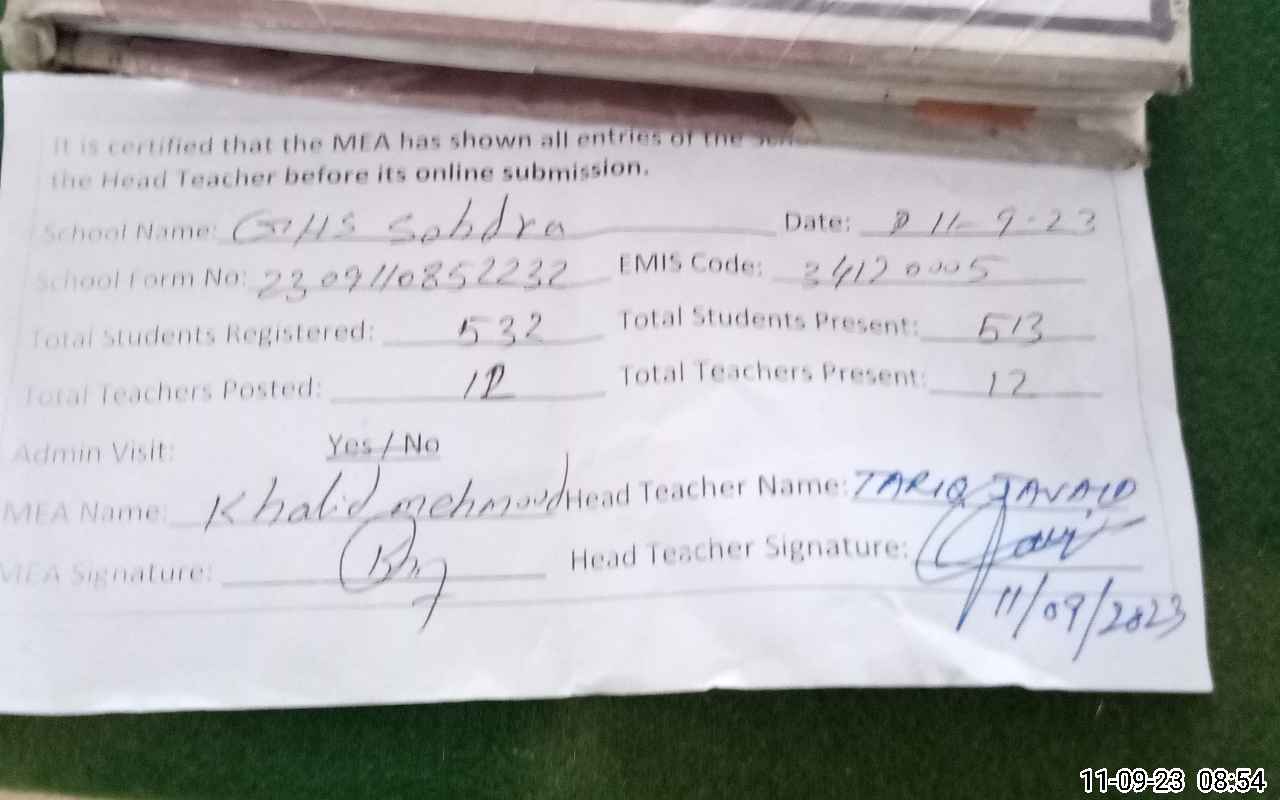 It is certified that the MEA has shown all entries of the
the Head Teacher before its online submission.
School Name: GHS Sohdra Date: 11-9-23
School Form No: 2309110852232 EMIS Code: 34120005
Total Students Registered: 532 Total Students Present: 513
Total Teachers Posted: 12 Total Teachers Present: 12
Admin Visit: Yes / No
MEA Name: Khalid mehmood Head Teacher Name: TARIQ JAVAID
MEA Signature: Head Teacher Signature:
11/09/2023
11-09-23 08:54